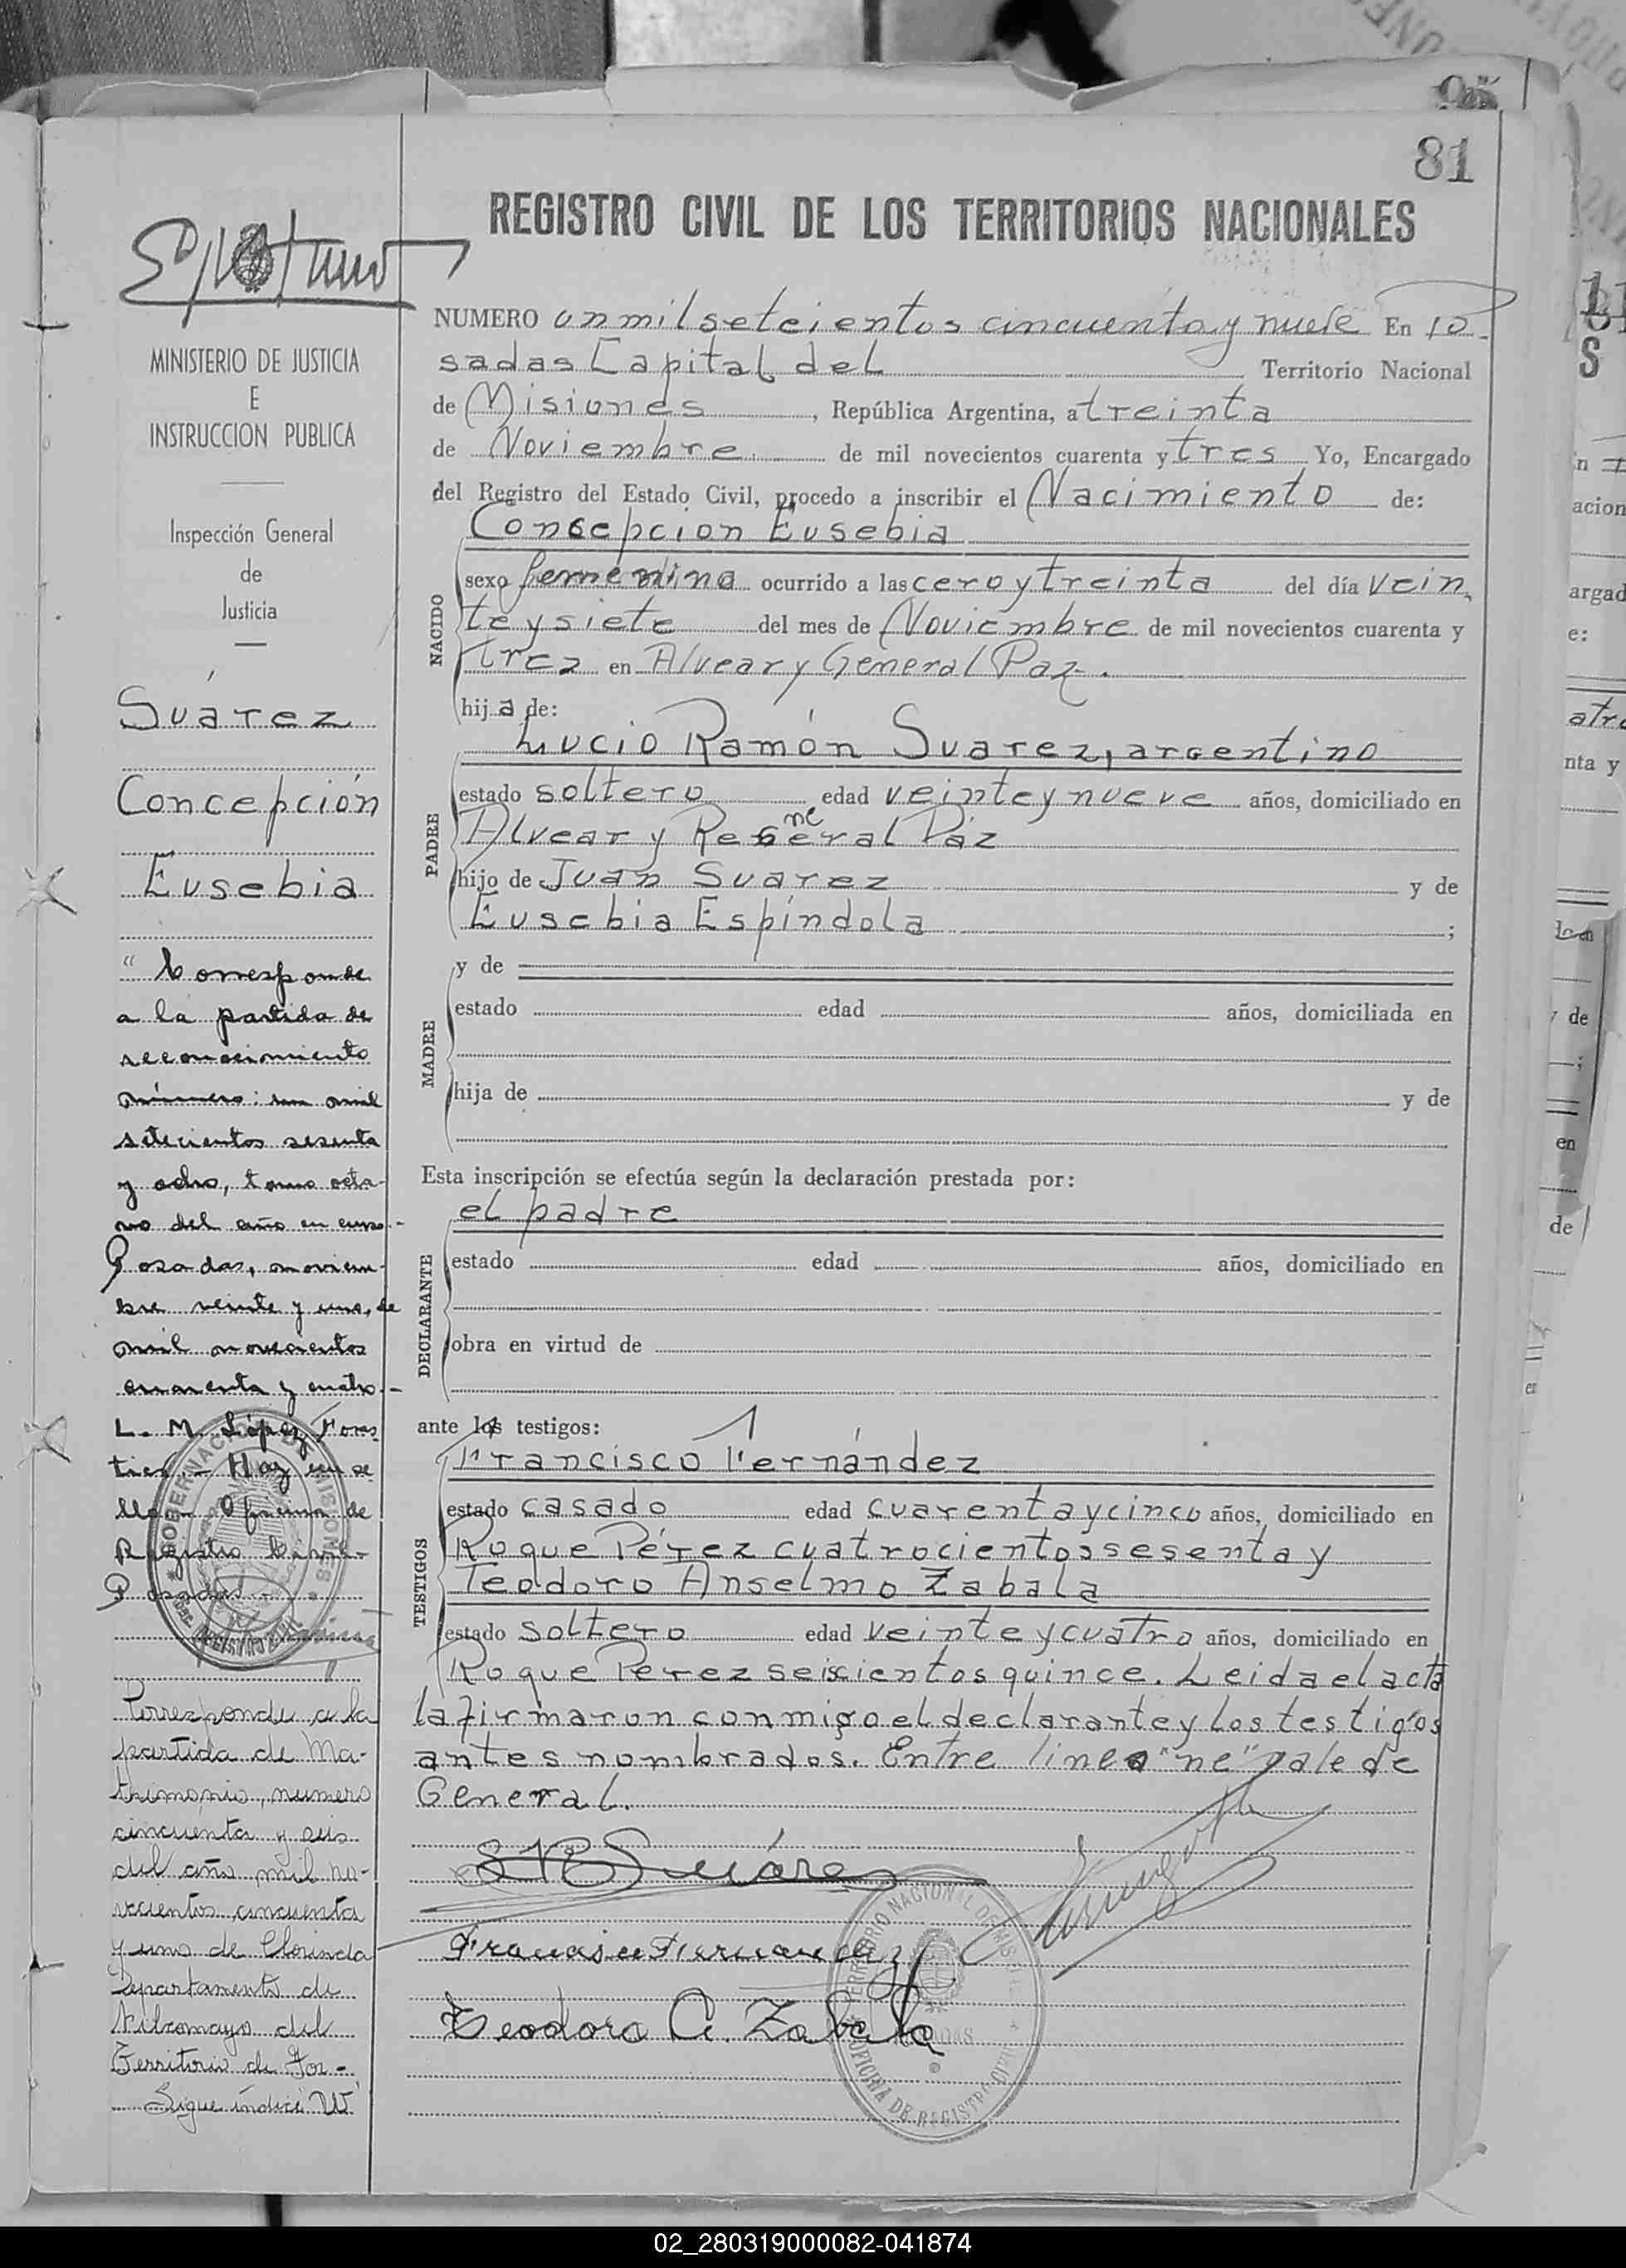 95
81
REGISTRO CIVIL DE LOS TERRITORIOS NACIONALES
NUMERO un mil seteientos cincuenta y nueve En Po-
sadas Capital del Territorio Nacional
de Misiones, República Argentina, a treinta
de Noviembre de mil novecientos cuarenta y tres Yo, Encargado
del Registro del Estado Civil, procedo a inscribir el Nacimiento de:
Concepcion Eusebia
NACIDO
sexo femenino ocurrido a las cero y treinta del día vein
te y siete del mes de Noviembre de mil novecientos cuarenta y
tres en Alvear y General Paz.
hija de:
Lucio Ramón Suarez, argentino
PADRE
estado soltero edad veinte y nueve años, domiciliado en
ne
Alvear y Reneral Páz
hijo de Juan Suarez y de
Eusebia Espíndola ;
MADRE
y de
estado edad años, domiciliada en
hija de y de
Esta inscripción se efectúa según la declaración prestada por:
el padre
DECLARANTE
estado edad años, domiciliado en
obra en virtud de
ante los testigos:
Francisco Fernández
TESTIGOS
estado casado edad cuarenta y cinco años, domiciliado en
Roque Pérez cuatrocientos sesenta y
Teodoro Anselmo Zabala
estado soltero edad veinte y cuatro años, domiciliado en
Roque Perez seiscientos quince. Leida el acta
la firmaron conmigo el declarante y los testigos
antes nombrados. Entre linea "ne" vale de
General.
Suárez
Francisco Fernandez
Teodoro A. Zabala
MINISTERIO DE JUSTICIA
E
INSTRUCCION PUBLICA
Inspección General
de
Justicia
Suárez
Concepción
Eusebia
"Corresponde
a la partida de
reconocimiento
número: un mil
setecientos sesenta
y ocho, tomo octa-
vo del año en curso.-
Posadas, noviem-
bre veinte y uno, de
mil novecientos
cuarenta y cuatro.-
L. M. López Fores
tier.- Hay un se
llo: Oficina de
Registro Civil-
Posadas.-
Corresponde a la
partida de Ma-
trimonio, numero
cincuenta y seis
del año mil no-
vecientos cincuenta
y uno de Clorinda
Departamento de
Pilcomayo del
Territorio de For-
Sigue índice W
02_280319000082-041874